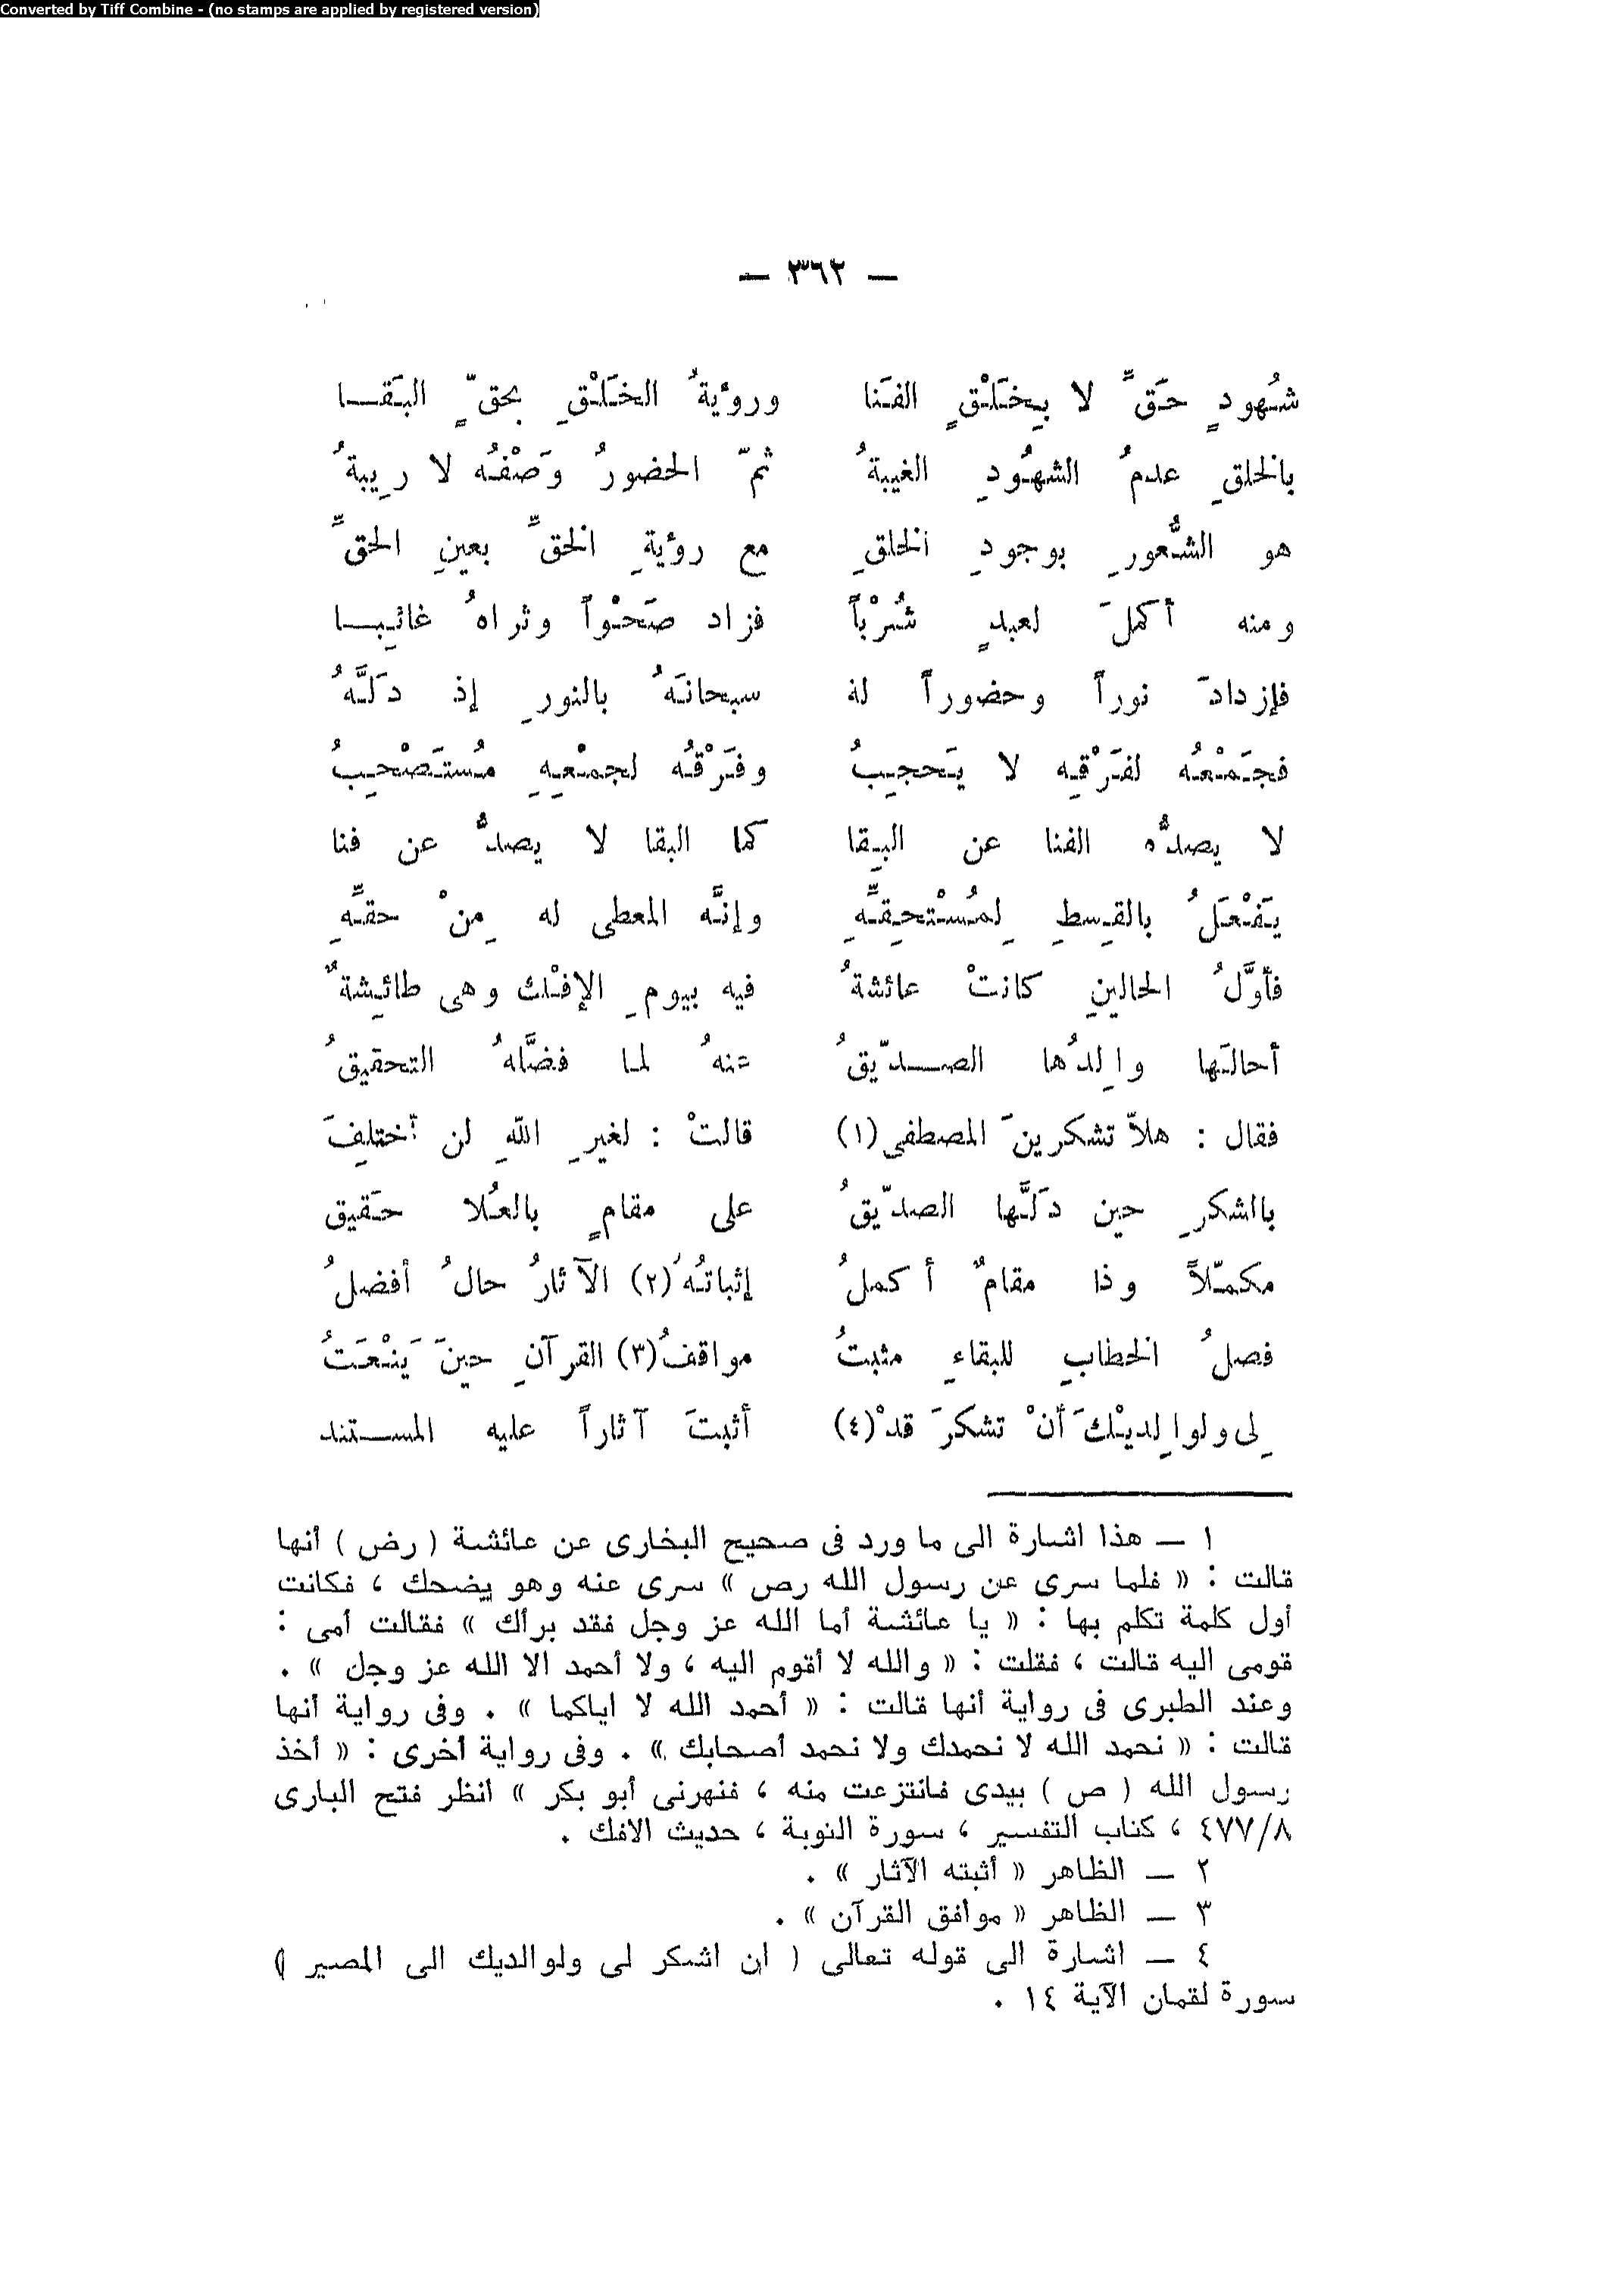 Converted by Tiff Combine - (no stamps are applied by registered version)
— ٣٦٢ —
شُهودٍ حَقٍّ لا بِخَلْقٍ الفَنا ورؤيةُ الخَلْقِ بحقٍّ البَقـــا
بالخلقِ عدمُ الشهُودِ الغيبةُ ثمّ الحضورُ وَصْفُه لا رِيبةُ
هو الشُّعورِ بوجودِ الخلقِ مع رؤيةِ الحقِّ بعينِ الحقِّ
ومنه أكملَ لعبدٍ شُرْباً فزاد صَحْواً وتراهُ غائِبـــا
فإزدادَ نوراً وحضوراً له سبحانَهُ بالنورِ إذ دَلَّهُ
فجَمْعُه لفَرْقِه لا يَحجِبُ وفَرْقُه لجمْعِهِ مُستَصْحِبُ
لا يصدُّه الفنا عن البِقا كما البقا لا يصدُّ عن فنا
يَفْعَلُ بالقِسطِ لِمُسْتَحِقِّهِ وإنَّه المعطى له مِنْ حقِّهِ
فأوَّلُ الحالينِ كانتْ عائشةُ فيه بيومِ الإفْك وهى طائِشةٌ
أحالَها والِدُها الصــدّيقُ عنهُ لما فضَّلهُ التحقيقُ
فقال : هلاّ تشكرينَ المصطفى(١) قالتْ : لغيرِ اللهِ لن أختلِفَ
باالشكرِ حين دَلَّها الصدّيقُ على مقامٍ بالعُلا حَقيق
مكمّلاً وذا مقامٌ أكملُ إثباتُهُ(٢) الآثارُ حالُ أفضلُ
فصلُ الخطابِ للبقاءِ مثبتُ مواقفُ(٣) القرآنِ حينَ يَنْعَتُ
لِى ولوالِديْكَ أنْ تشكرَ قدْ(٤) أثبتَ آثاراً عليه المســتند
١ — هذا اشارة الى ما ورد فى صحيح البخارى عن عائشة ( رض ) أنها
قالت : « فلما سرى عن رسول الله رص » سرى عنه وهو يضحك ، فكانت
أول كلمة تكلم بها : « يا عائشة أما الله عز وجل فقد برأك » فقالت أمى :
قومى اليه قالت ، فقلت : « والله لا أقوم اليه ، ولا أحمد الا الله عز وجل » .
وعند الطبرى فى رواية أنها قالت : « أحمد الله لا اياكما » . وفى رواية أنها
قالت : « نحمد الله لا نحمدك ولا نحمد أصحابك » . وفى رواية أخرى : « أخذ
رسول الله ( ص ) بيدى فانتزعت منه ، فنهرنى أبو بكر » انظر فتح البارى
٤٧٧/٨ ، كتاب التفسير ، سورة النوبة ، حديث الافك .
٢ — الظاهر « أثبته الآثار » .
٣ — الظاهر « موافق القرآن » .
٤ — اشارة الى قوله تعالى ( ان اشكر لى ولوالديك الى المصير )
سورة لقمان الآية ١٤ .